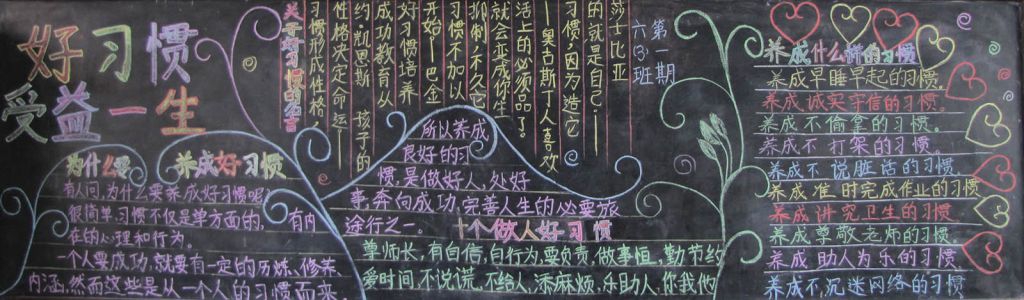 好习惯
受益一生
为什么要 养成好习惯
有人问:为什么要养成好习惯呢?
很简单,习惯不仅是单方面的,有内
在的心理和行为。
一个人要成功,就要有一定的历炼、修养、
内涵,然而这些是从一个人的习惯而来,
关于好习惯的名言
习惯形成性格,
性格决定命运——
约·凯恩斯 孩子的
成功教育从
好习惯培养
开始——巴金
习惯不加以
抑制,不久它
就会变成你生
活上的必须品了。
——奥古斯丁人喜欢
习惯,因为造它
的就是自己·——
莎士比亚
第一期
六(3)班
所以养成
良好的习
惯,是做好人,处好
事,奔向成功,完善人生的必要旅
途行之一。
十个做人好习惯
尊师长,有自信,自行为,要负责,做事恒,勤节约
爱时间,不说谎,不给人,添麻烦,乐助人,你我他
养成什么样的习惯
养成早睡早起的习惯
养成诚实守信的习惯。
养成不偷拿的习惯。
养成不打架的习惯。
养成不说脏话的习惯。
养成准时完成作业的习惯
养成讲究卫生的习惯.
养成尊敬老师的习惯。
养成助人为乐的习惯
养成不沉迷网络的习惯